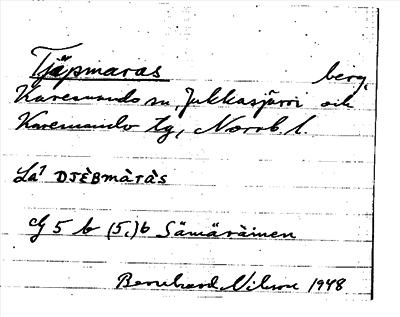 Tjåpmaras berg,
Karesuando sn, Jukkasjärvi och
Karesuando tg, Norrb. l.
La1 DJÈBmàràs
cG 5 b (5,)b Sämäräinen
Bernhard Nilsson 1948